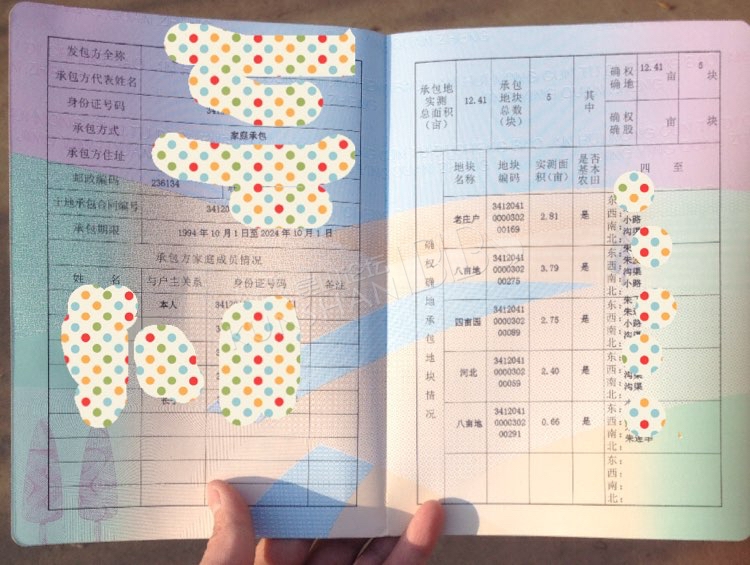 发包方全称
承包方代表姓名
身份证号码 34
承包方式 家庭承包
承包方住址
邮政编码 236134
土地承包合同编号 3412
承包期限 1994年10月1日至2024年10月1日
承包方家庭成员情况
姓 名 与户主关系 身份证号码 备注
本人 3412
承包地实测总面积(亩) 12.41 承包地块总数(块) 5 其中 确权确地 12.41 亩 5 块
确权确股 亩 块
确权确地承包地块情况
地块名称 地块编码 实测面积(亩) 是否基本农田 四 至
老庄户 3412041000030200169 2.81 是 东: 西:小路 南:沟渠 北:
八亩地 3412041000030200275 3.79 是 东: 西: 南:沟渠 北:小路
四亩园 3412041000030200099 2.75 是 东: 西: 南:小路 北:沟渠
河北 3412041000030200059 2.40 是 东: 西: 南:沟渠 北:沟渠
八亩地 3412041000030200291 0.66 是 东: 西: 南: 北:
东:
西:
南:
北: